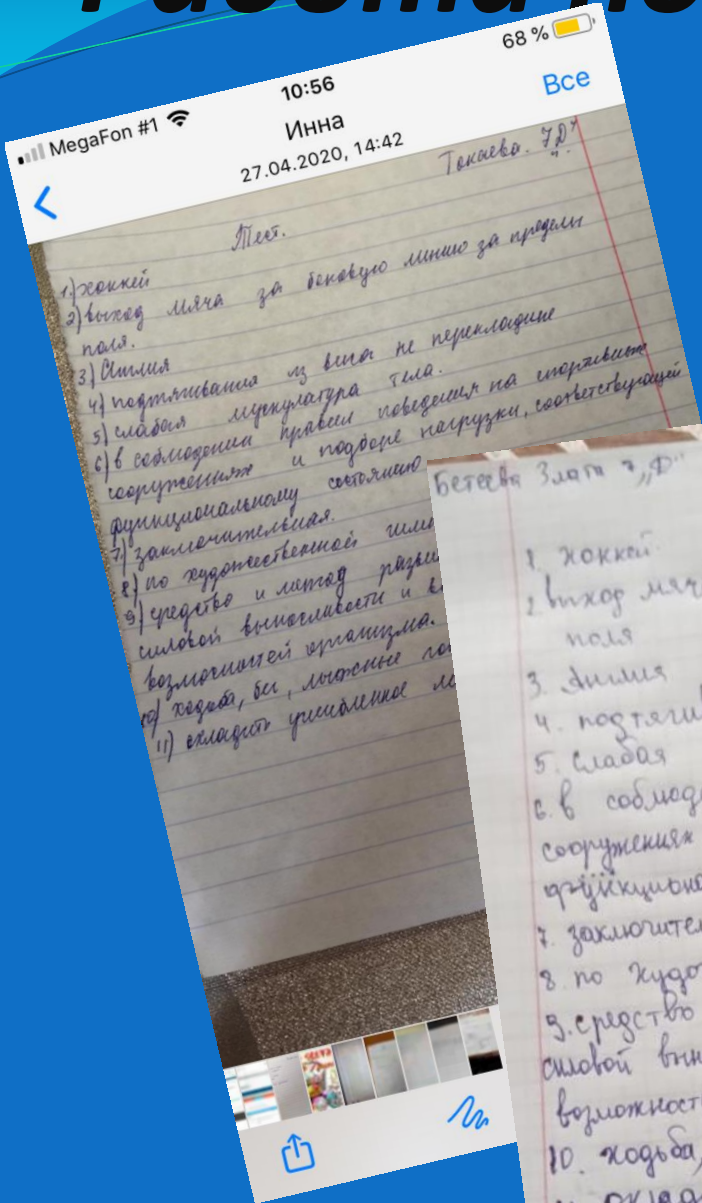 Работа по
MegaFon #1
10:56
68 %
Инна
27.04.2020, 14:42
Все
Токаева. 7Д"
Тест.
1.) хоккей
2) выход мяча за боковую линию за пределы
поля.
3) Англия
4) подтягивания из виса не перекладине
5) слабая мускулатура тела.
6) в соблюдении правил поведения на спортивных
сооружениях и подборе нагрузки, соответствующей
функциональному состоянию
7) заключительная.
8) по художественной гимн
9) средство и метод разви
силовой выносливости и в
возможностей организма.
10) ходьба, бег, лыжные го
11) охладить ушибленное ме
Бетеева Злата 7 „Ф"
1. хоккей.
2. выход мяч
поля
3. Англия
4. подтягив
5. слабая
6. в соблюд
сооружениях
функциона
7. заключител
8. по худо
9. средство
силовой вын
возможност
10. ходьба,